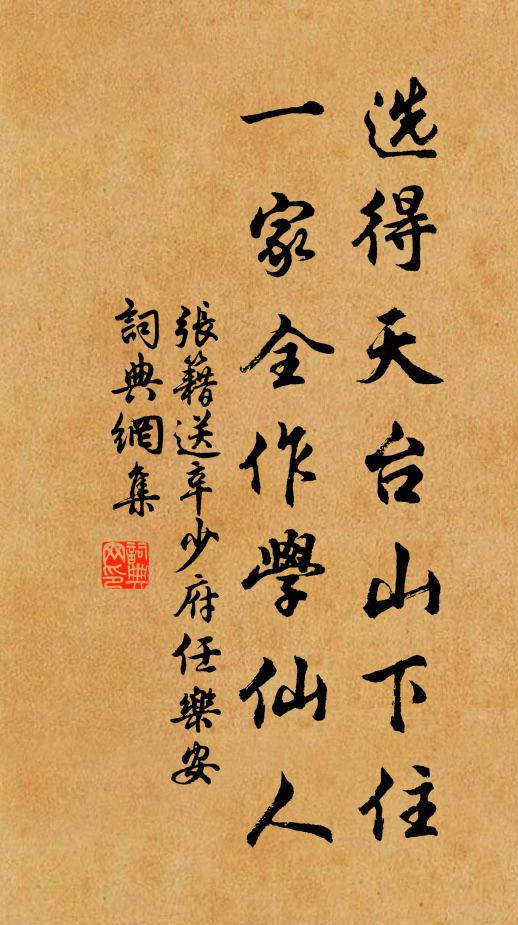 选得天台山下住
一家全作學仙人
張籍送辛少府任樂安
詞典網集
詞典
网印